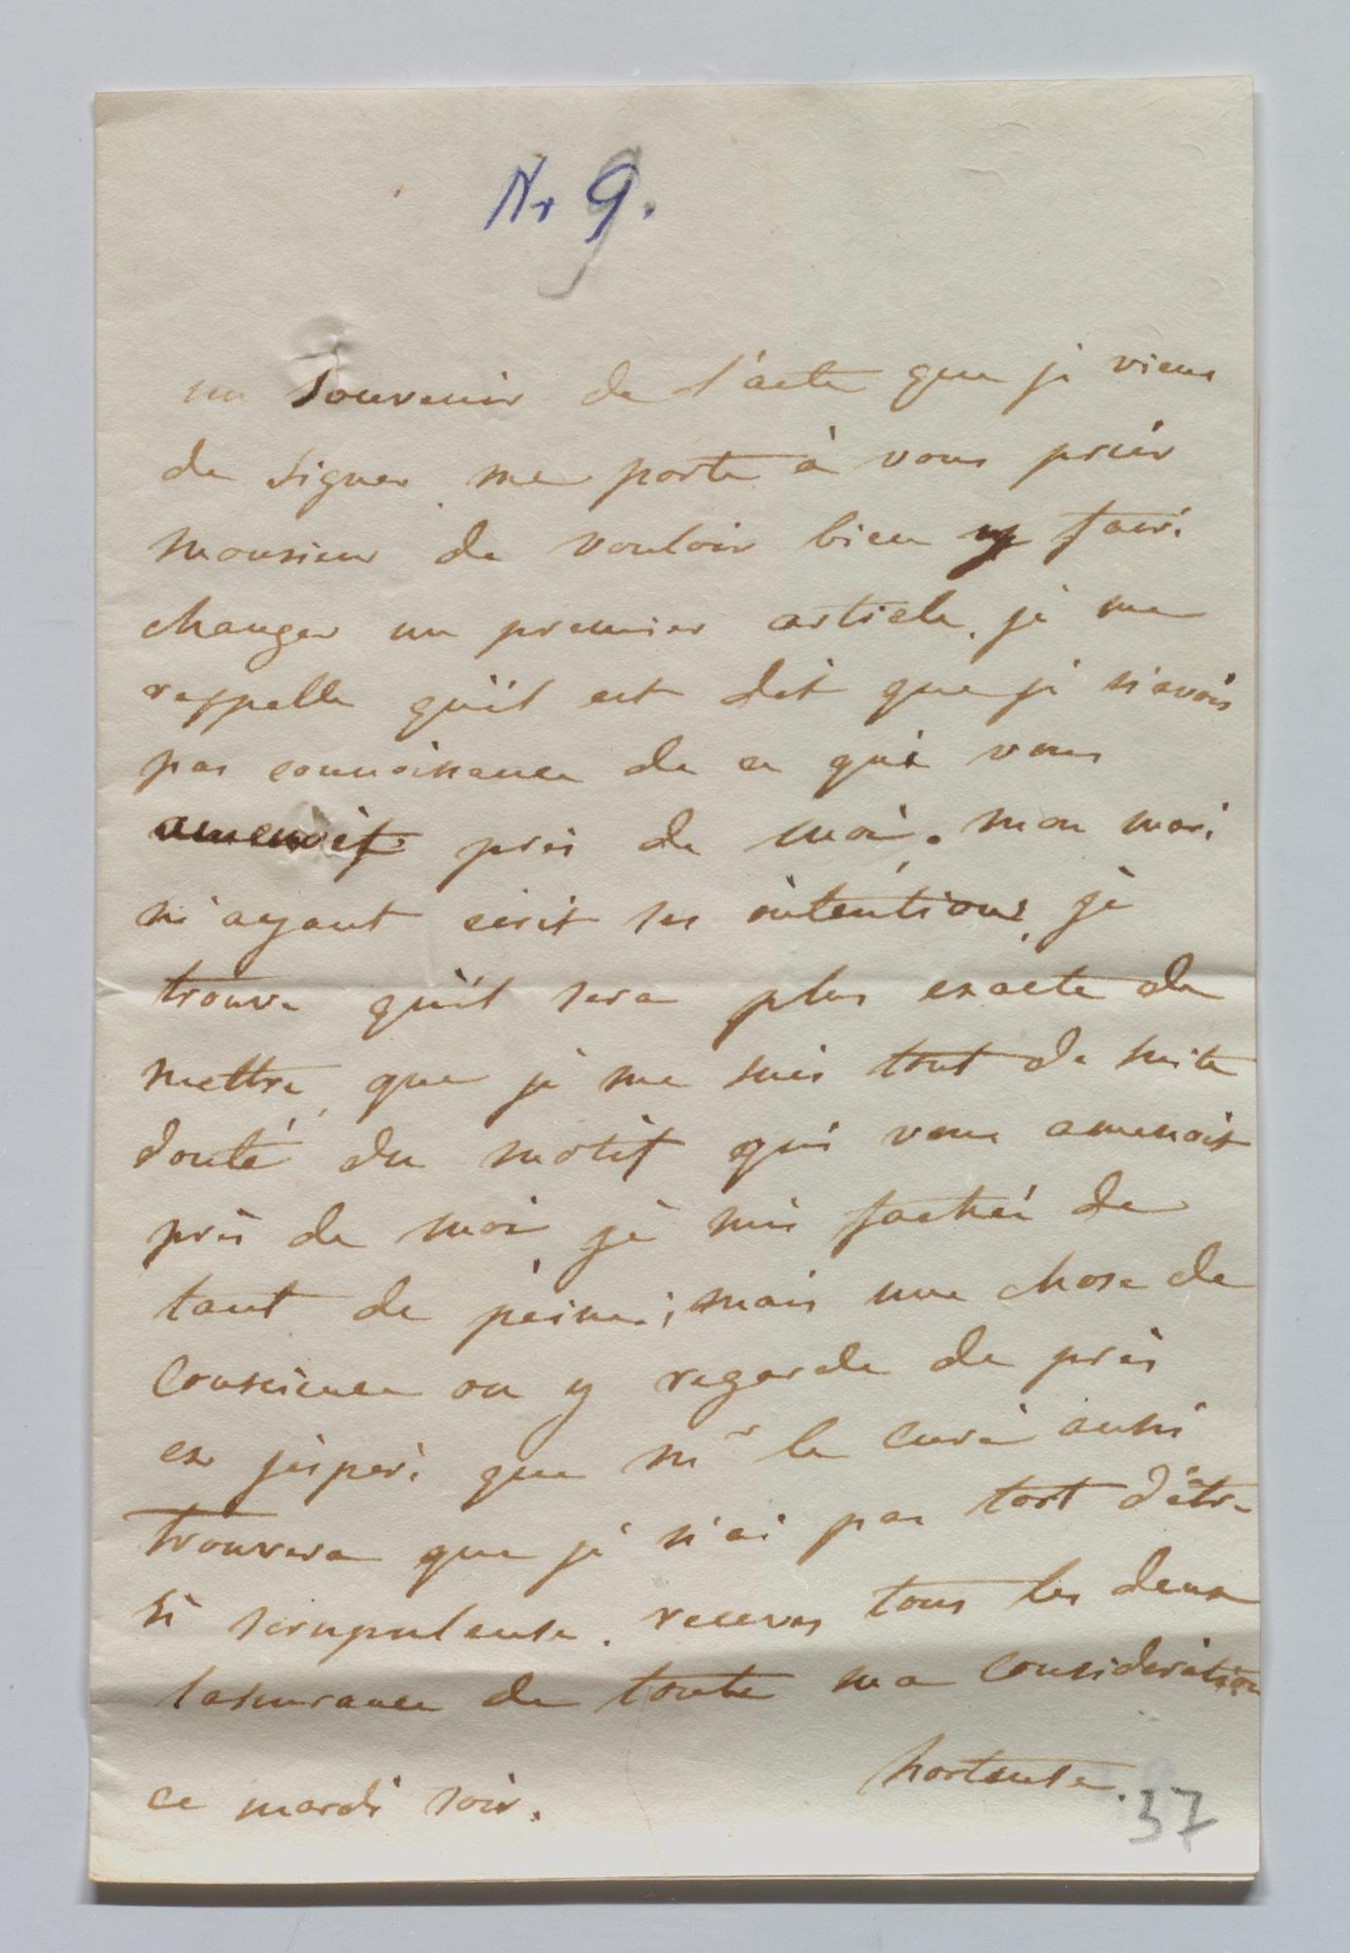 Nr 9.
un Souvenir de l'acte que je viens
de signer me porte à vous prier
monsieur de vouloir bien y faire
changer un premier article, je me
rappelle qu'il est dit que je n'avois
pas connoissance de ce qui vous
amenoit près de moi. mon mari
m'ayant écrit ses intentions, je
trouve qu'il sera plus exacte de
mettre, que je me suis tout de suite
douté du motif qui vous amenoit
près de moi, je suis fachée de
tant de peine; mais une chose de
Conscience on y regarde de près
et j'espère que mr le curé aussi
trouvera que je n'ai pas tort d'être
si scrupuleuse. recevez tous les deux
lassurance de toute ma Considération
hortense.
ce mardi soir.
37